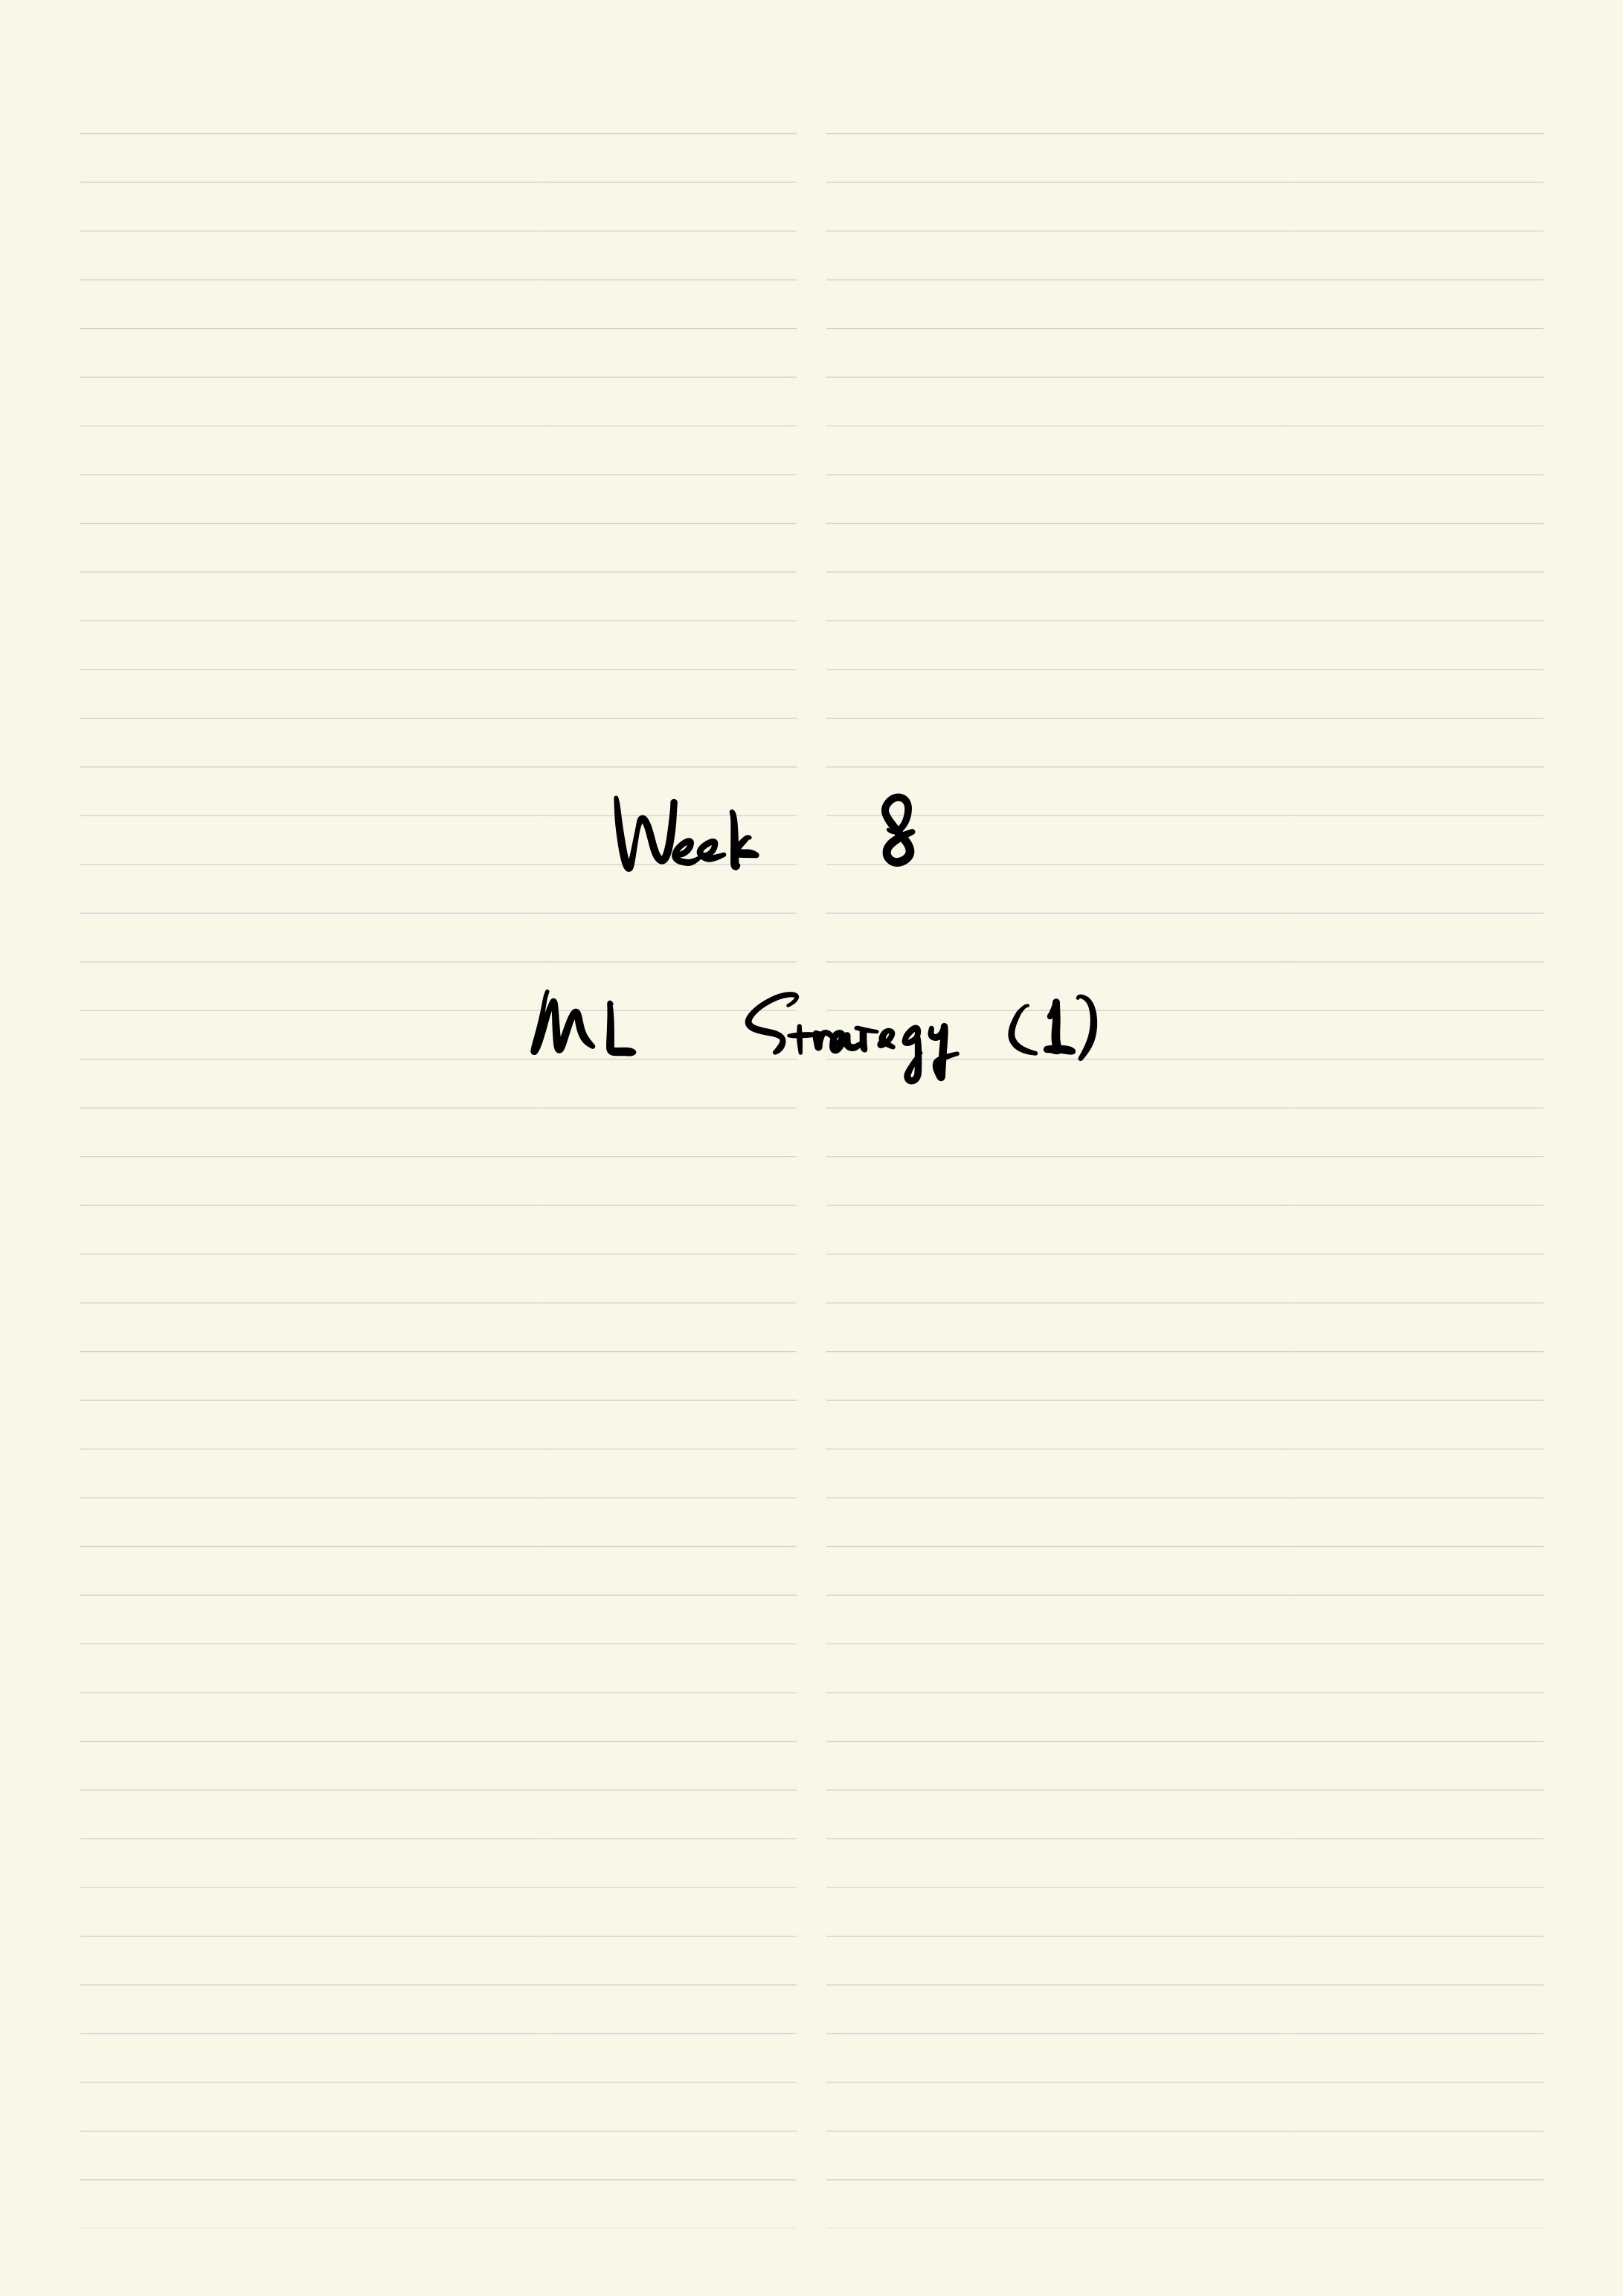 Week 8
ML Strategy (1)